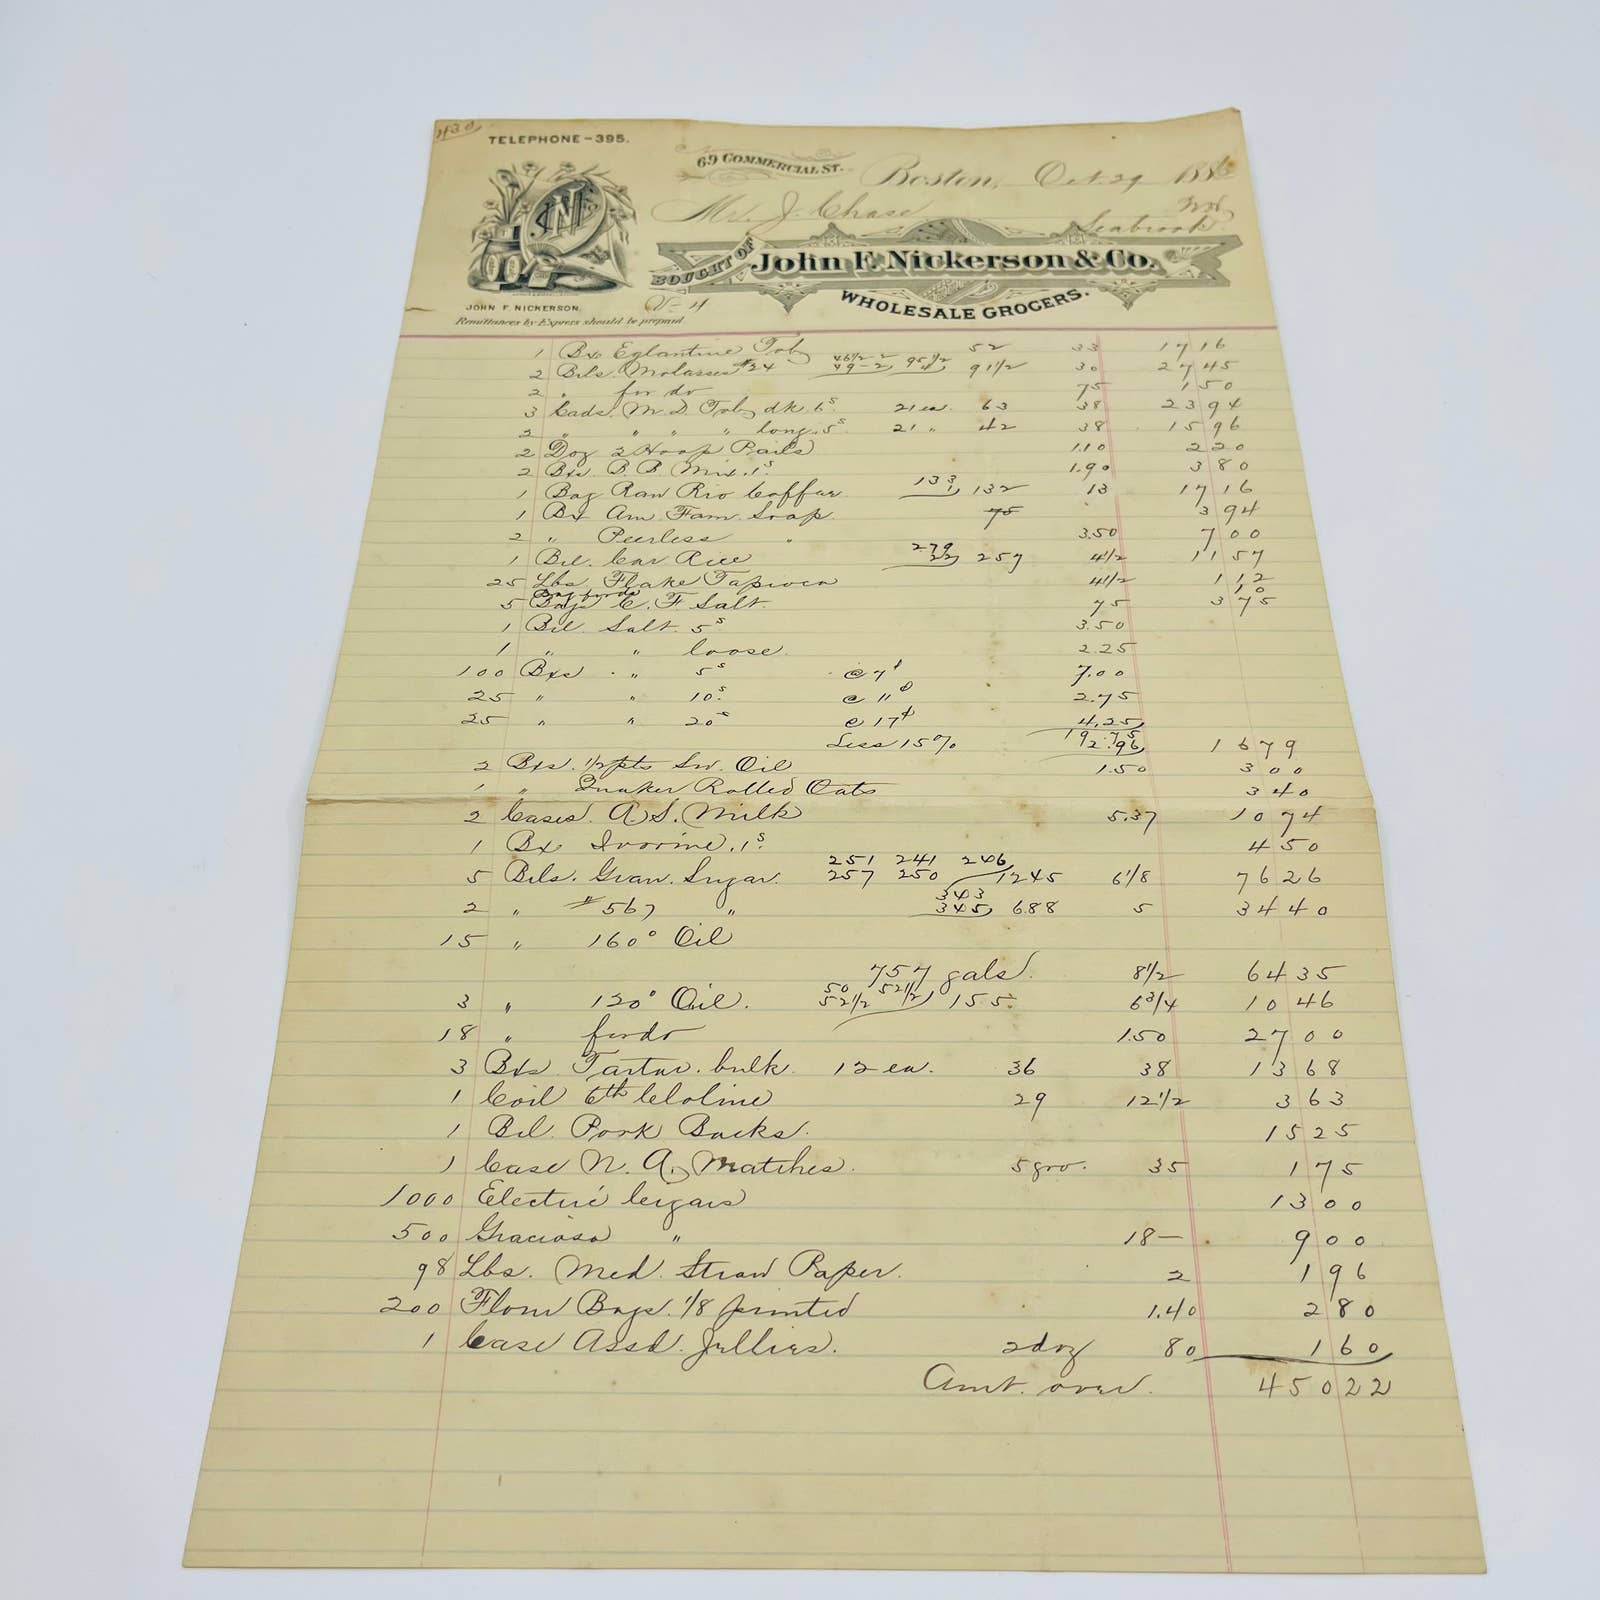 430
TELEPHONE-395.
69 COMMERCIAL ST. Boston, Oct. 29 188
Mr. J. Chase
Seabrook
BOUGHT OF John F. Nickerson & Co.
WHOLESALE GROCERS.
JOHN F. NICKERSON.
Remittances by Express should be prepaid.
1 Bx Eglantine Tob 52 33 17 16
2 Bbls. Molasses #24 46 1/2-2 49-2 95 1/2 4 91 1/2 30 27 45
2 " for do 75 1 50
3 Cads. M. D. Tob dk. 6s. 21 ea. 63 38 23 94
2 " " " " long. 5s. 21 " 42 38 15 96
2 Doz 2 Hoop Pails 1.10 2 20
2 Bxs. B. B. Mix. 1s. 1.90 3 80
1 Bag Raw Rio Coffee. 133 1 132 13 17 16
1 Bx Am. Fam. Soap. 75 3 94
2 " Peerless " 3.50 7 00
1 Bbl. Car Rice 279 22 257 4 1/2 11 57
25 Lbs. Flake Tapioca 4 1/2 1 12
Bag for do 10
5 Bags C. F. Salt. 75 3 75
1 Bbl. Salt. 5s 3.50
1 " " loose. 2.25
100 Bxs " 5s @ 7¢ 7.00
25 " " 10s. @ 11¢ 2.75
25 " " 20s @ 17¢ 4.25
19.75
Less 15% 2.96 16 79
2 Bxs. 1/2 pts Sw. Oil 1.50 3 00
1 " Quaker Rolled Oats 3 40
2 Cases. A. S. Milk 5.37 10 74
1 Bx Ivorine. 1s. 4 50
5 Bbls. Gran. Sugar. 251 241 246 257 250 1245 6 1/8 76 26
2 " #567 " 343 345 688 5 34 40
15 " 160° Oil
757 gals. 8 1/2 64 35
3 " 120° Oil. 50 52 1/2 52 1/2 155 6 3/4 10 46
18 " for do 1.50 27 00
3 Bxs Tartar. bulk. 12 ea. 36 38 13 68
1 Coil 6th Cloline 29 12 1/2 3 63
1 Bbl. Pork Backs. 15 25
1 Case N. A. Matches. 5 gro. 35 1 75
1000 Electric Cigars 13 00
500 Graciosa " 18- 9 00
98 Lbs. Med. Straw Paper. 2 1 96
200 Flour Bags. 1/8 printed 1.40 2 80
1 Case Assd. Jellies. 2 doz 80 1 60
Amt. over. 450 22